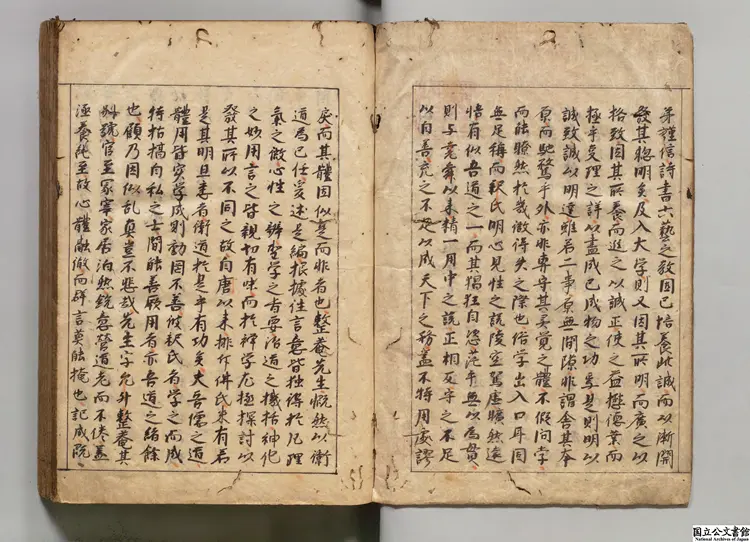 弟謹信詩書六藝之教固已培養此誠而以漸開
發其聡明矣及入大学則又因其所明而廣之以
格致因其所養而進之以誠正使之益懋德業而
極乎文理之詳以盡成己成物之功是則明以
誠致誠以明達雖若二事原無間隙非謂舍其本
原而馳騖乎外亦非専守其覚之體不假问学
而能瞭然於幾微得失之際也俗学出入口耳固
無足稱而釈氏明心見性之説陵空駕虚曠然遠
悟有似吾道之一而其猖狂自恣茫乎無以為貫
則与堯舜以来精一用中之説正相反守之不足
以自善充之不足以成天下之務蓋不特用處謬
戾而其體固似是而非者也整菴先生慨然以衛
道為己任爰述是編根據往言意皆独得於凡理
氣之微心性之辨聖学之要治道之機括神化
之妙用言之皆親切有味而於禅学尤極探討以
發其所以不同之故自唐以来排斥佛氏未有若
是其明且悉者衛道於是乎有功矣夫吾儒之道
體用皆实学成則動罔不善彼釈氏者学之而成
特枯槁自私之士間能善厥用者亦吾道之緒餘
也顧乃因似乱真豈不悲哉先生字允升整菴其
別號官至冢宰家居泊然鋭意營道老而不倦蓋
涵養純至故心體融徹而辞言莫能掩也記成既
国立公文書館
National Archives of Japan